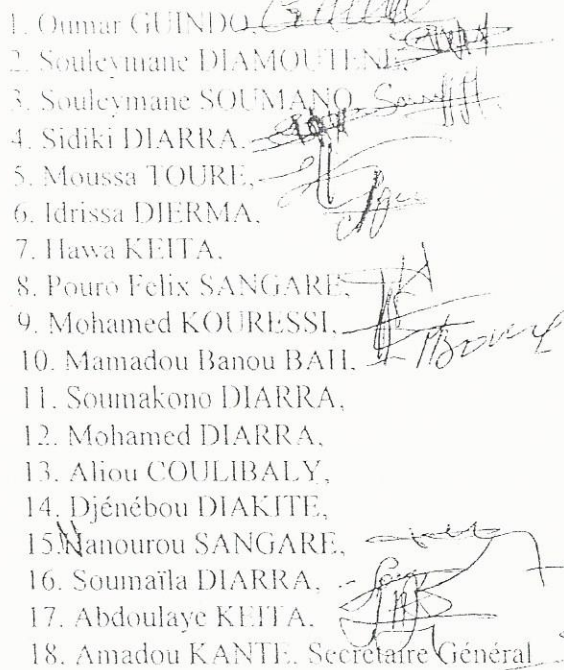 1. Oumar GUINDO,
2. Souleymane DIAMOUTENE,
3. Souleymane SOUMANO,
4. Sidiki DIARRA,
5. Moussa TOURE,
6. Idrissa DIERMA,
7. Hawa KEITA,
8. Pouro Felix SANGARE,
9. Mohamed KOURESSI,
10. Mamadou Banou BAH,
11. Soumakono DIARRA,
12. Mohamed DIARRA,
13. Aliou COULIBALY,
14. Djénébou DIAKITE,
15. Nanourou SANGARE,
16. Soumaïla DIARRA,
17. Abdoulaye KEITA,
18. Amadou KANTE, Secrétaire Général